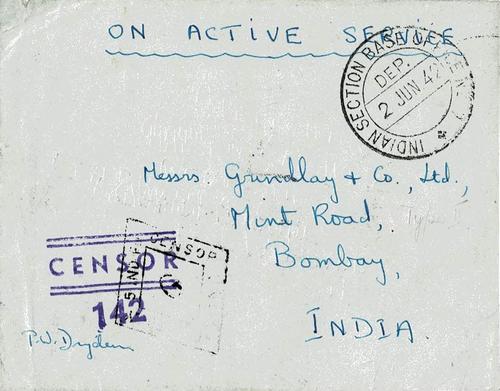 ON ACTIVE SERVICE
INDIAN SECTION BASE
DEP.
2 JUN 42
Messrs. Grindlay & Co., Ltd.,
Mint Road,
Bombay,
INDIA.
CENSOR
142
CENSOR
P.W. Dryden